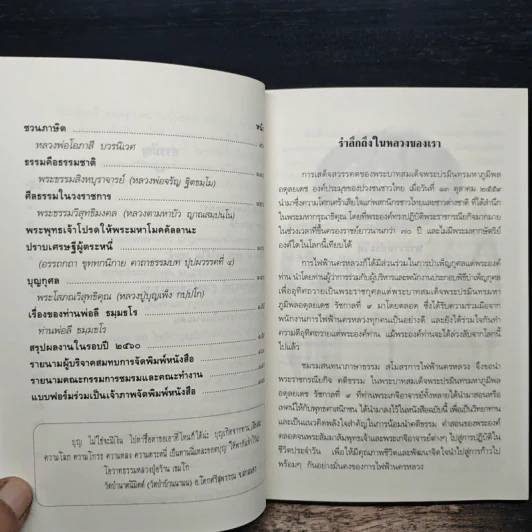 ชวนภาษิต
หลวงพ่อโอภาสี บวรนิเวศ
ธรรมคือธรรมชาติ
พระธรรมสิงหบุราจารย์ (หลวงพ่อจรัญ ฐิตธมฺโม)
ศีลธรรมในวงราชการ
พระธรรมวิสุทธิมงคล (หลวงตามหาบัว ญาณสมฺปนฺโน)
พระพุทธเจ้าโปรดให้พระมหาโมคคัลลานะ
ปราบเศรษฐีผู้ตระหนี่
(อรรถกถา ขุททกนิกาย คาถาธรรมบท ปุปผวรรคที่ ๔)
บุญกุศล
พระโสภณวิสุทธิคุณ (หลวงปู่บุญเพ็ง กปฺปโก)
เรื่องของท่านพ่อลี ธมฺมธโร
ท่านพ่อลี ธมฺมธโร
สรุปผลงานในรอบปี ๒๕๖๐
รายนามผู้บริจาคสมทบการจัดพิมพ์หนังสือ
รายนามคณะกรรมการชมรมและคณะทำงาน
แบบฟอร์มร่วมเป็นเจ้าภาพจัดพิมพ์หนังสือ
บุญ ไม่ใช่จะมีเงิน
ความโลภ ความโกรธ ความหลง ความตระหนี่
รำลึกถึงในหลวงของเรา
การเสด็จสวรรคตของพระบาทสมเด็จพระปรมินทรมหาภูมิพล
อดุลยเดช องค์ประมุขของปวงชนชาวไทย เมื่อวันที่ ๑๓ ตุลาคม ๒๕๕๙
นำมาซึ่งความโศกเศร้าเสียใจแก่พสกนิกรชาวไทยและชาวต่างชาติ ที่ได้สำนึก
ในพระมหากรุณาธิคุณ โดยที่พระองค์ทรงปฏิบัติพระราชกรณียกิจมากมาย
ในช่วงเวลาที่ขึ้นครองราชย์ยาวนานกว่า ๗๐ ปี และไม่มีพระมหากษัตริย์
องค์ใดในโลกนี้เทียบได้
การไฟฟ้านครหลวง ก็ได้มีส่วนร่วมในการบำเพ็ญกุศลแด่พระองค์
ท่าน นำโดยท่านผู้ว่าการร่วมกับผู้บริหารและพนักงานประกอบพิธีบำเพ็ญกุศล
เพื่ออุทิศถวายเป็นพระราชกุศลแด่พระบาทสมเด็จพระปรมินทรมหาภูมิพล
อดุลยเดช รัชกาลที่ ๙ มาโดยตลอด ซึ่งได้รับความร่วมมือจาก
พนักงานการไฟฟ้านครหลวงทุกคนเป็นอย่างดี และยังได้ร่วมใจกันทำ
ความดีอุทิศถวายแด่พระองค์ท่าน แม้พระองค์ท่านจะได้ล่วงลับจากโลกนี้
ไปแล้ว
ชมรมสนทนาภาษาธรรม สโมสรการไฟฟ้านครหลวง จึงขอนำ
พระราชกรณียกิจ คติธรรม ในพระบาทสมเด็จพระปรมินทรมหาภูมิพล
อดุลยเดช รัชกาลที่ ๙ ที่พระเกจิอาจารย์ทั้งหลายได้นำมาสอนหรือ
เทศน์ให้กับพุทธศาสนิกชน ได้นำมาลงไว้ในหนังสือฉบับนี้ เพื่อเป็นวิทยาทาน
และเป็นแนวคิดพลังใจสำคัญในการน้อมนำคติธรรม คำสอนของพระองค์
ตลอดจนพระสัมมาสัมพุทธเจ้าและพระเกจิอาจารย์ต่างๆ ไปสู่การปฏิบัติใน
ชีวิตประจำวัน เพื่อให้มีคุณภาพชีวิตและพัฒนาจิตใจนำไปสู่การก้าวไป
พร้อมๆ กันอย่างมั่นคงของการไฟฟ้านครหลวง